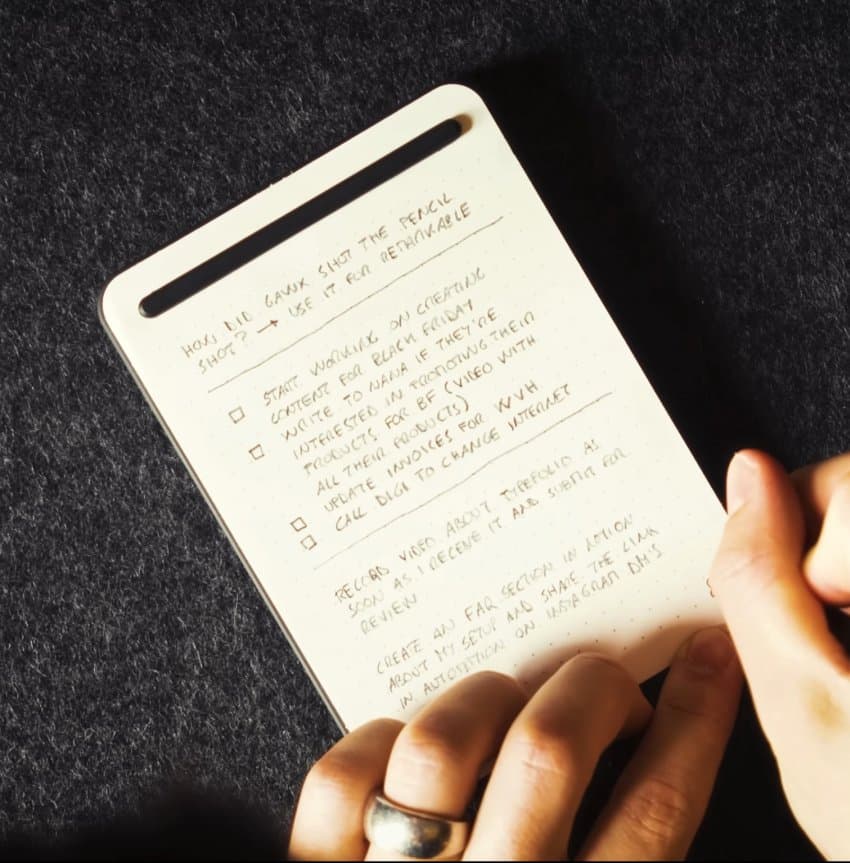 HOW DID GAWX SHOT THE PENCIL
SHOT? → USE IT FOR REMARKABLE
START WORKING ON CREATING
CONTENT FOR BLACK FRIDAY
WRITE TO NANA IF THEY'RE
INTERESTED IN PROMOTING THEIR
PRODUCTS FOR BF (VIDEO WITH
ALL THEIR PRODUCTS)
UPDATE INVOICES FOR WVH
CALL DIGI TO CHANGE INTERNET
RECORD VIDEO ABOUT TYPEFOLIO AS
SOON AS I RECEIVE IT AND SUBMIT FOR
REVIEW
CREATE AN FAR SECTION IN NOTION
ABOUT MY SETUP AND SHARE THE LINK
IN AUTOMATION ON INSTAGRAM DM'S